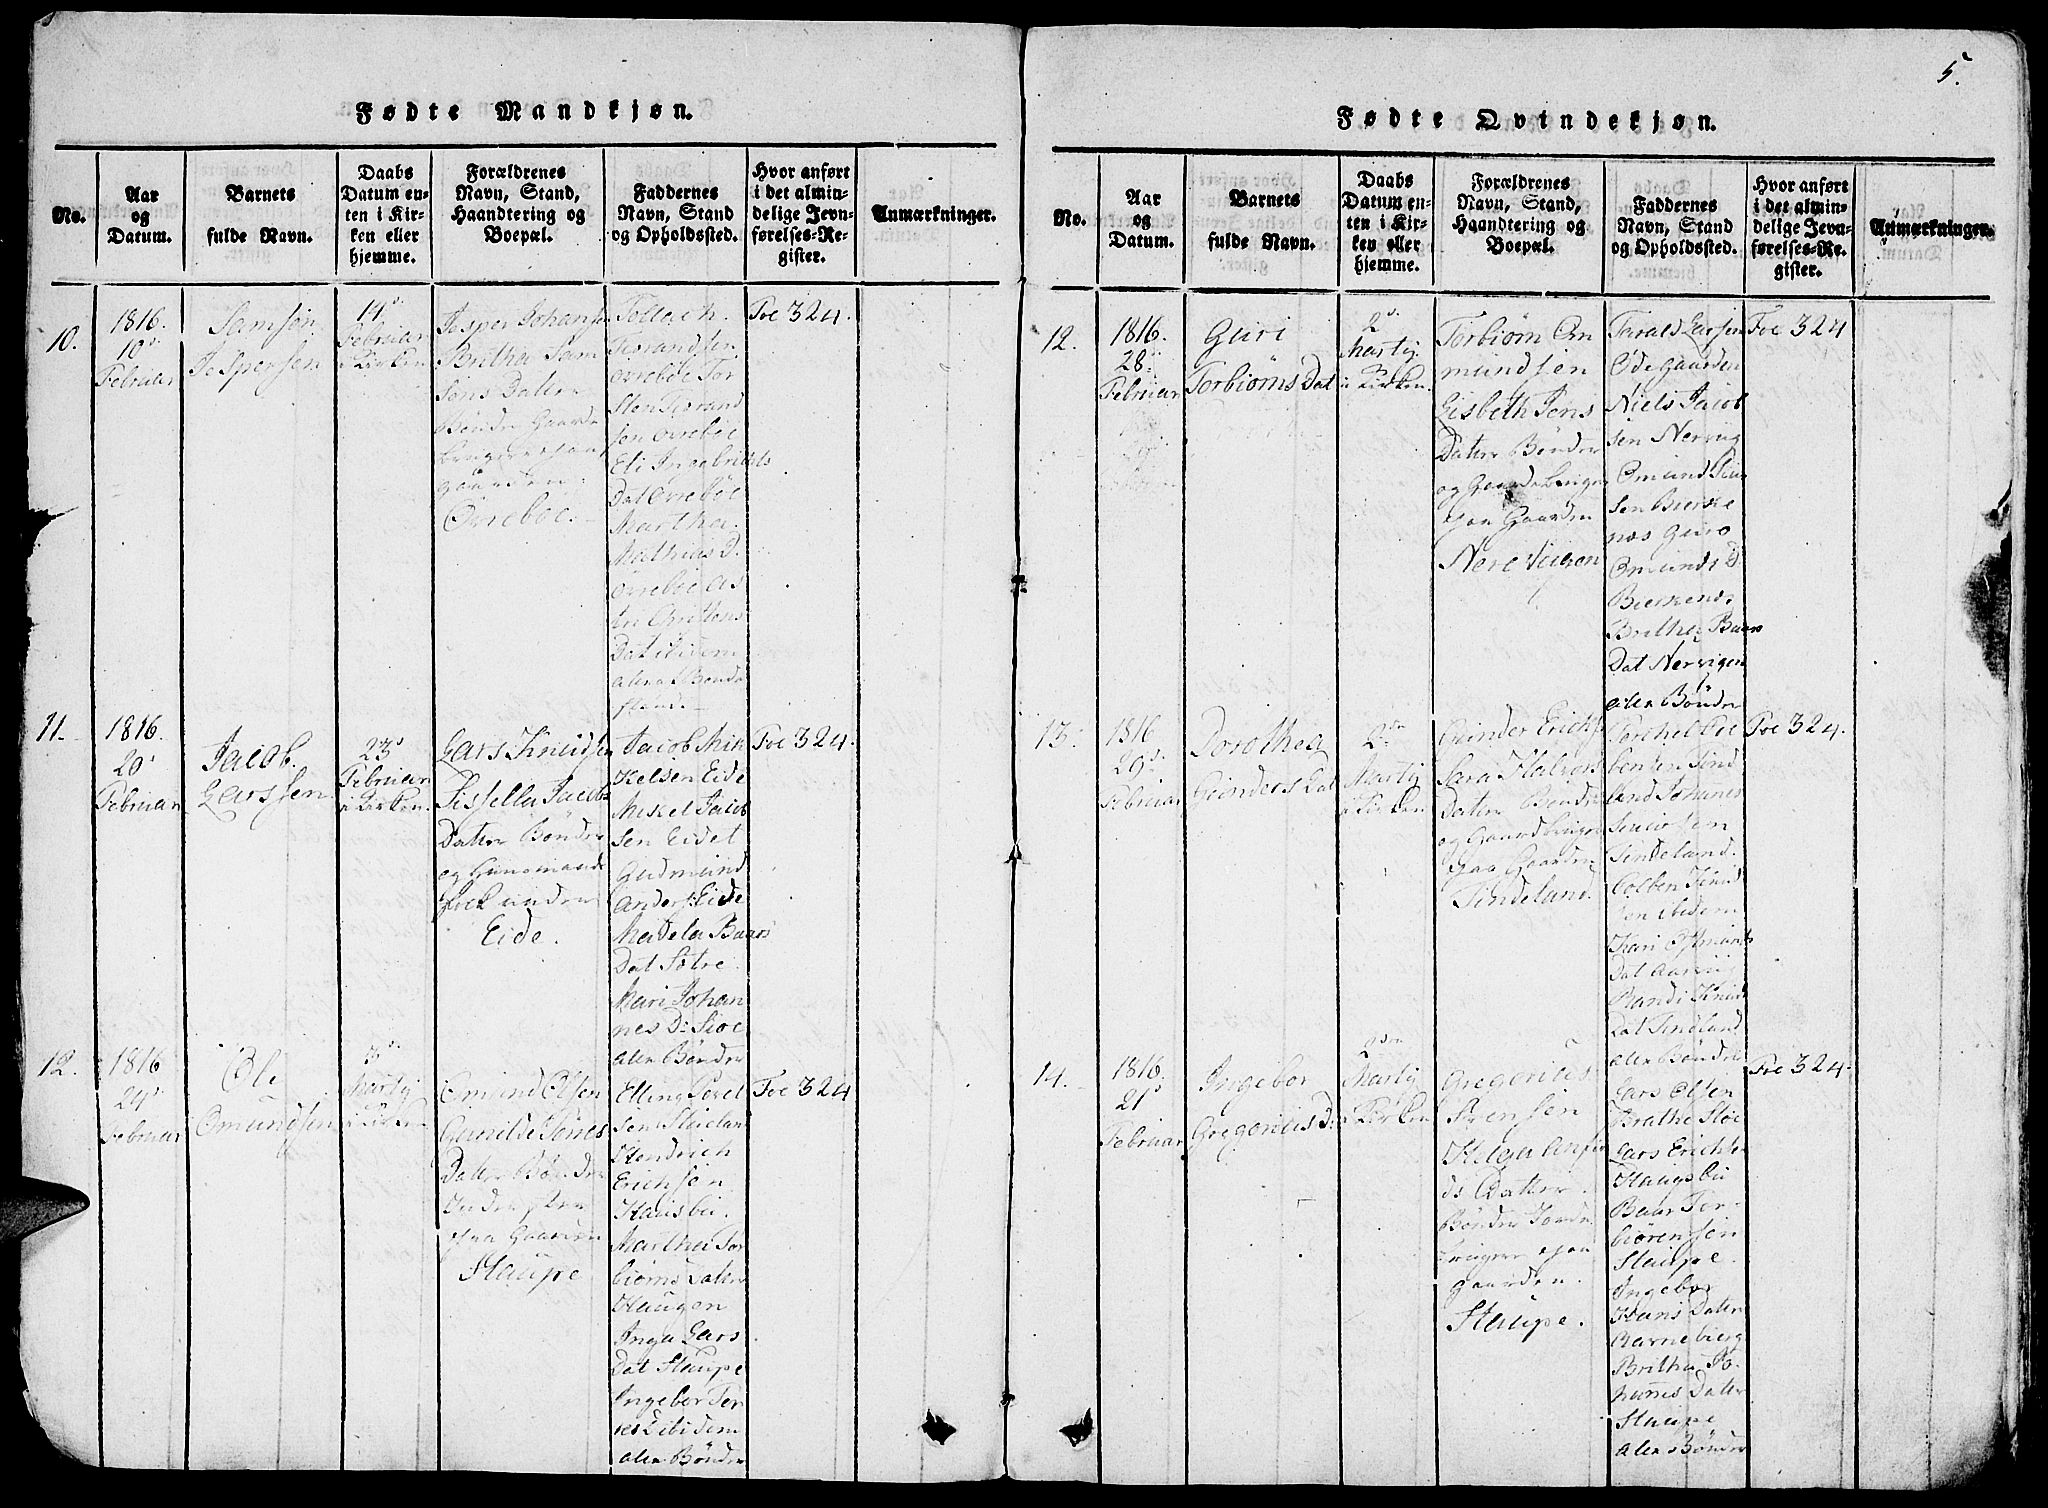 5.
Fødte Mandkjøn.
No.
Aar
og
Datum.
Barnets
fulde Navn.
Daabs
Datum en-
ten i Kir-
ken eller
hjemme.
Forældrenes
Navn, Stand,
Haandtering og
Boepæl.
Faddernes
Navn, Stand
og Opholdssted.
Hvor anført
i det almin-
delige Jevn-
førelses-Re-
gister.
Anmærkninger.
10.
1816.
10d
Februar
Samson
Jespersen
14d
Februar
i Kirken
Jesper Johansen
Britha Sam
sons Datter
Bønder Gaard
gaarden
Øvreboe.
Tollach
Øvreboe Tor
sten
sen Øvreboe
Eli Ingebrichts
Dat Øvreboe
Martha
Mathias D.
Øvreboe As
tri
Dat ibidem
alle Bønde
stand.
Foe 324.
11.
1816.
20d
Februar
Jacob
Larssen
23d
Februar
i Kirken
Lars Knudsen
Sissella Jacobs
Datter Bønder
og Huusmands
folk under
Eide.
Jacob Mik
kelsen Eide
Mikel Jacob
sen Eidet
Gudmund
Anders: Eide
Madela Baars
Dat Sætre.
Mari Johan
nes D: Sioe
alle Bønder
Foe 324.
12.
1816
24d
Februar
Ole
Omundsen
3d
Martij
i Kirken
Omund Olsen
Gunilde Tønnes
Datter Bønder
paa Gaarden
Staupe
Elling Sivert
sen
Hendrich
Erichsen
Hausbu.
Martha Tor
biørns Datter
Haugen
Inga Lars
Dat Staupe
Ingebor Tor
res D ibidem
alle Bønder
Foe 324
Fødte Qvindekjøn.
No.
Aar
og
Datum.
Barnets
fulde Navn.
Daabs
Datum en-
ten i Kir-
ken eller
hjemme.
Forældrenes
Navn, Stand,
Haandtering og
Boepæl.
Faddernes
Navn, Stand
og Opholdssted.
Hvor anført
i det almin-
delige Jevn-
førelses-Re-
gister.
Anmærkninger.
12.
1816.
28d
Februar
Guri
Torbiørns Dat
2d
Martij
i Kirken.
Torbiørn Om
mundsen
Lisbeth Jens
Datter Bønder
og Gaardbruger
paa Gaarden
Nere Viigen
Tarald Larsen
Ødegaarden
Niels Jacob
sen Nerviig
Omund
sen Bierke
nes Guro
Omunds D
Bierkenes
Britha Baars
Dat Nervigen
alle Bønder
Foe 324
13.
1816
29d
Februar
Dorothea
Gunders Dat
2den
Martij
i Kirken
Gunder Erichs
Sara Halvors
Datter Bønder
og Gaardbruger
paa Gaarden
Tindeland.
Torchel Col
bensen Tind
land Johanes
Tindeland.
Colben Knud
sen ibidem
Kari
Dat
Randi Knuds
Dat Tindland
alle Bønder
Foe 324.
14.
1816.
21d
Februar
Ingebor
Gregorius D:
2den
Martij
i Kirken
Gregorius
Svensen
Helga
Datter
Bønder
bruger paa
gaarden.
Staupe.
Lars Olsen
Brathe
Lars Erichs
Haugsbu
Baar Tor-
biørensen
Staupe.
Ingebor
Hans Datter
Britha Jo-
hannes Datter
Staupe
alle Bønder
Foe 324.